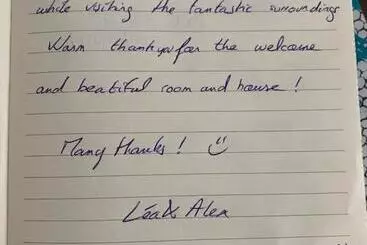 while visiting the fantastic surroundings
Warm thankyou for the welcome
and beatiful room and house !
Many thanks ! :)
Léa & Alex